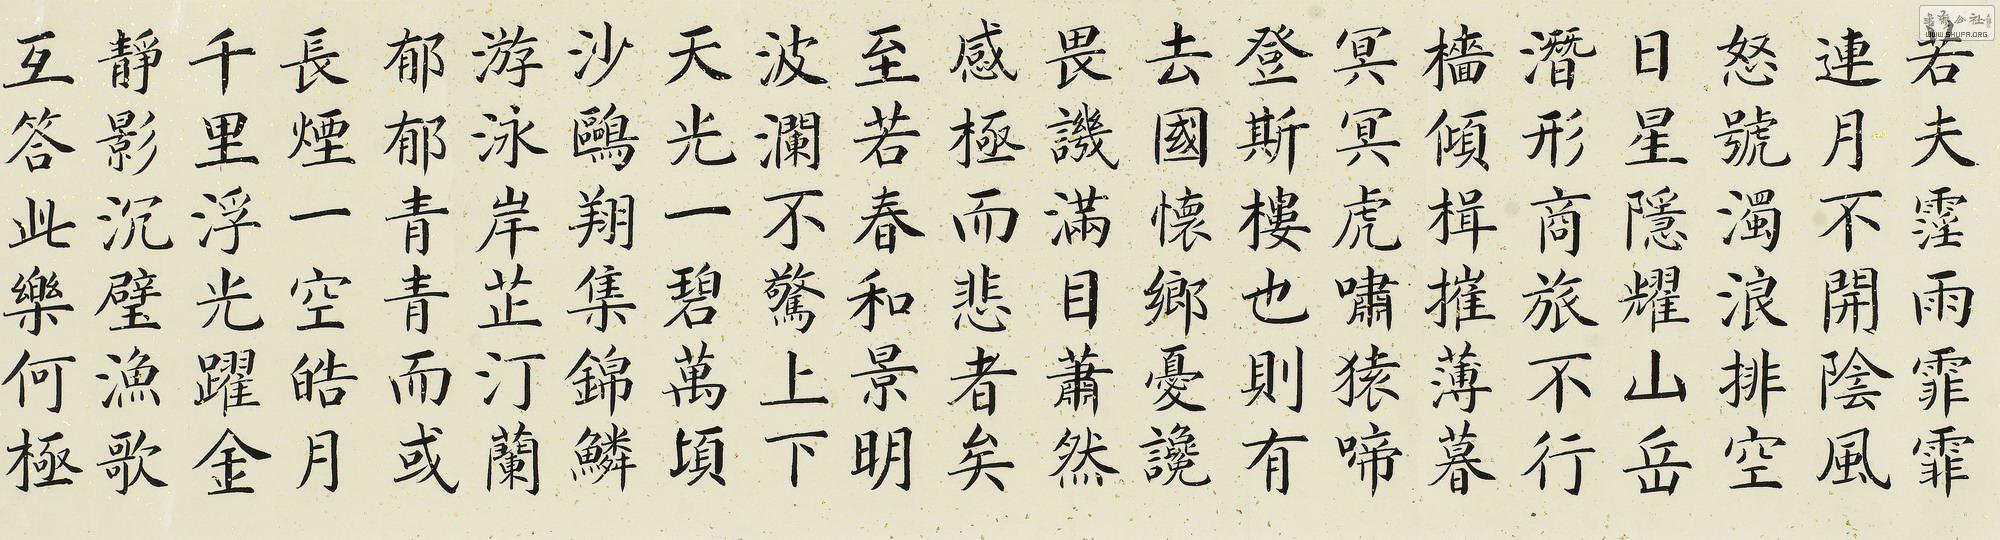 若夫霪雨霏霏
連月不開陰風
怒號濁浪排空
日星隱耀山岳
潛形商旅不行
檣傾楫摧薄暮
冥冥虎嘯猿啼
登斯樓也則有
去國懷鄉憂讒
畏譏滿目蕭然
感極而悲者矣
至若春和景明
波瀾不驚上下
天光一碧萬頃
沙鷗翔集錦鱗
游泳岸芷汀蘭
郁郁青青而或
長煙一空皓月
千里浮光躍金
靜影沉璧漁歌
互答此樂何極
WWW.SHUFA.ORG